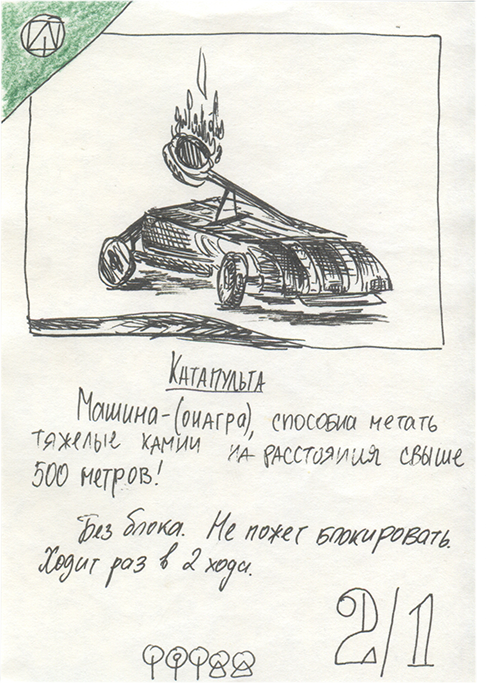 Катапульта
Машина-(онагра), способна метать
тяжелые камни на расстояния свыше
500 метров!
Без блока. Не может блокировать.
Ходит раз в 2 хода.
2/1